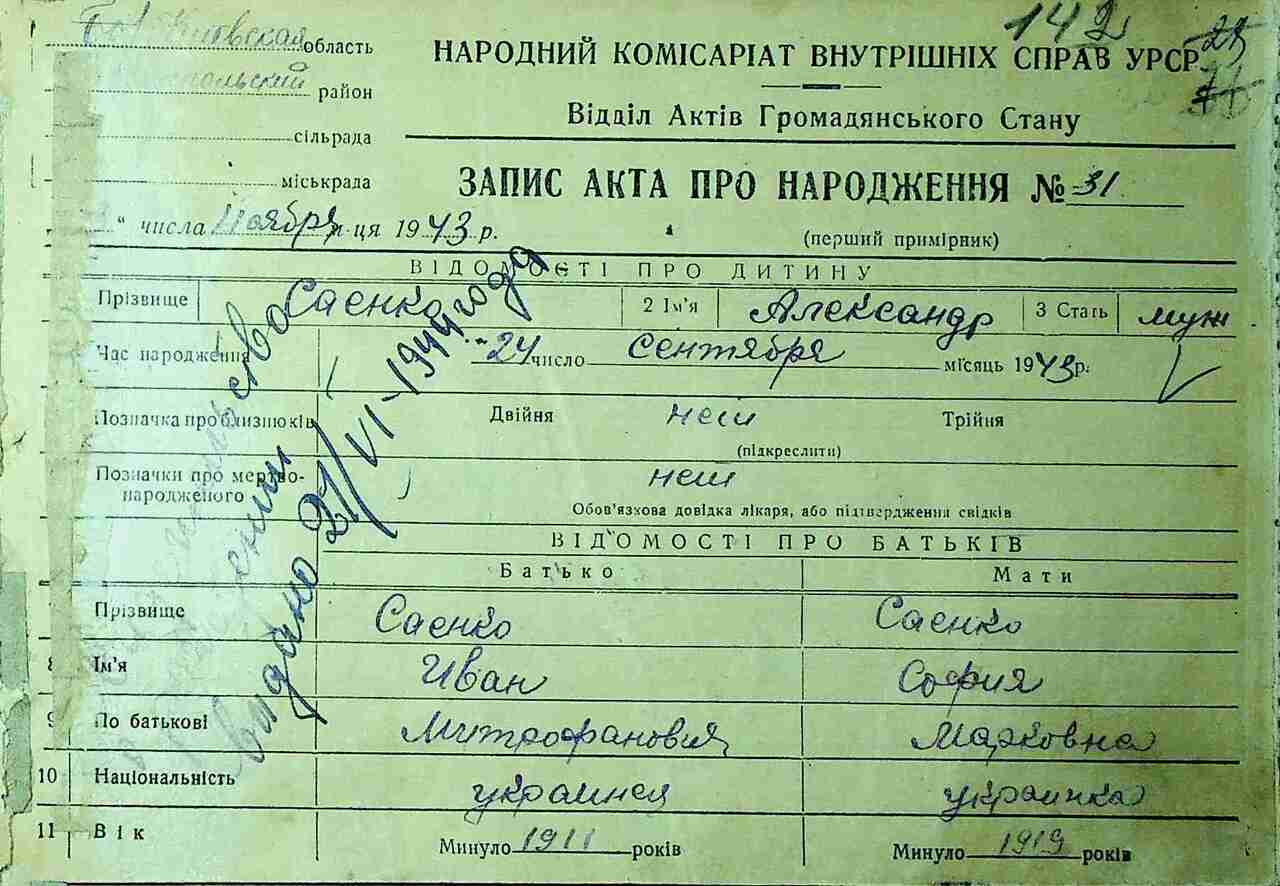 Киевская область
район
сільрада
міськрада
142
НАРОДНИЙ КОМІСАРІАТ ВНУТРІШНІХ СПРАВ УРСР
Відділ Актів Громадянського Стану
ЗАПИС АКТА ПРО НАРОДЖЕННЯ № 31
" числа Ноября м-ця 1943 р.
(перший примірник)
ВІДОМОСТІ ПРО ДИТИНУ
Прізвище Саенко 2 Ім'я Александр 3 Стать муж.
Час народження "24 число Сентября місяць 1943 р.
Позначка про близнюків Двійня нет Трійня
(підкреслити)
Позначки про мертво-
народженого нет
Обов'язкова довідка лікаря, або підтвердження свідків
Видано 21/VI-1944 года
ВІДОМОСТІ ПРО БАТЬКІВ
Батько Мати
Прізвище Саенко Саенко
8 Ім'я Иван София
9 По батькові Митрофанович Марковна
10 Національність украинец украинка
11 Вік Минуло 1911 років Минуло 1919 років